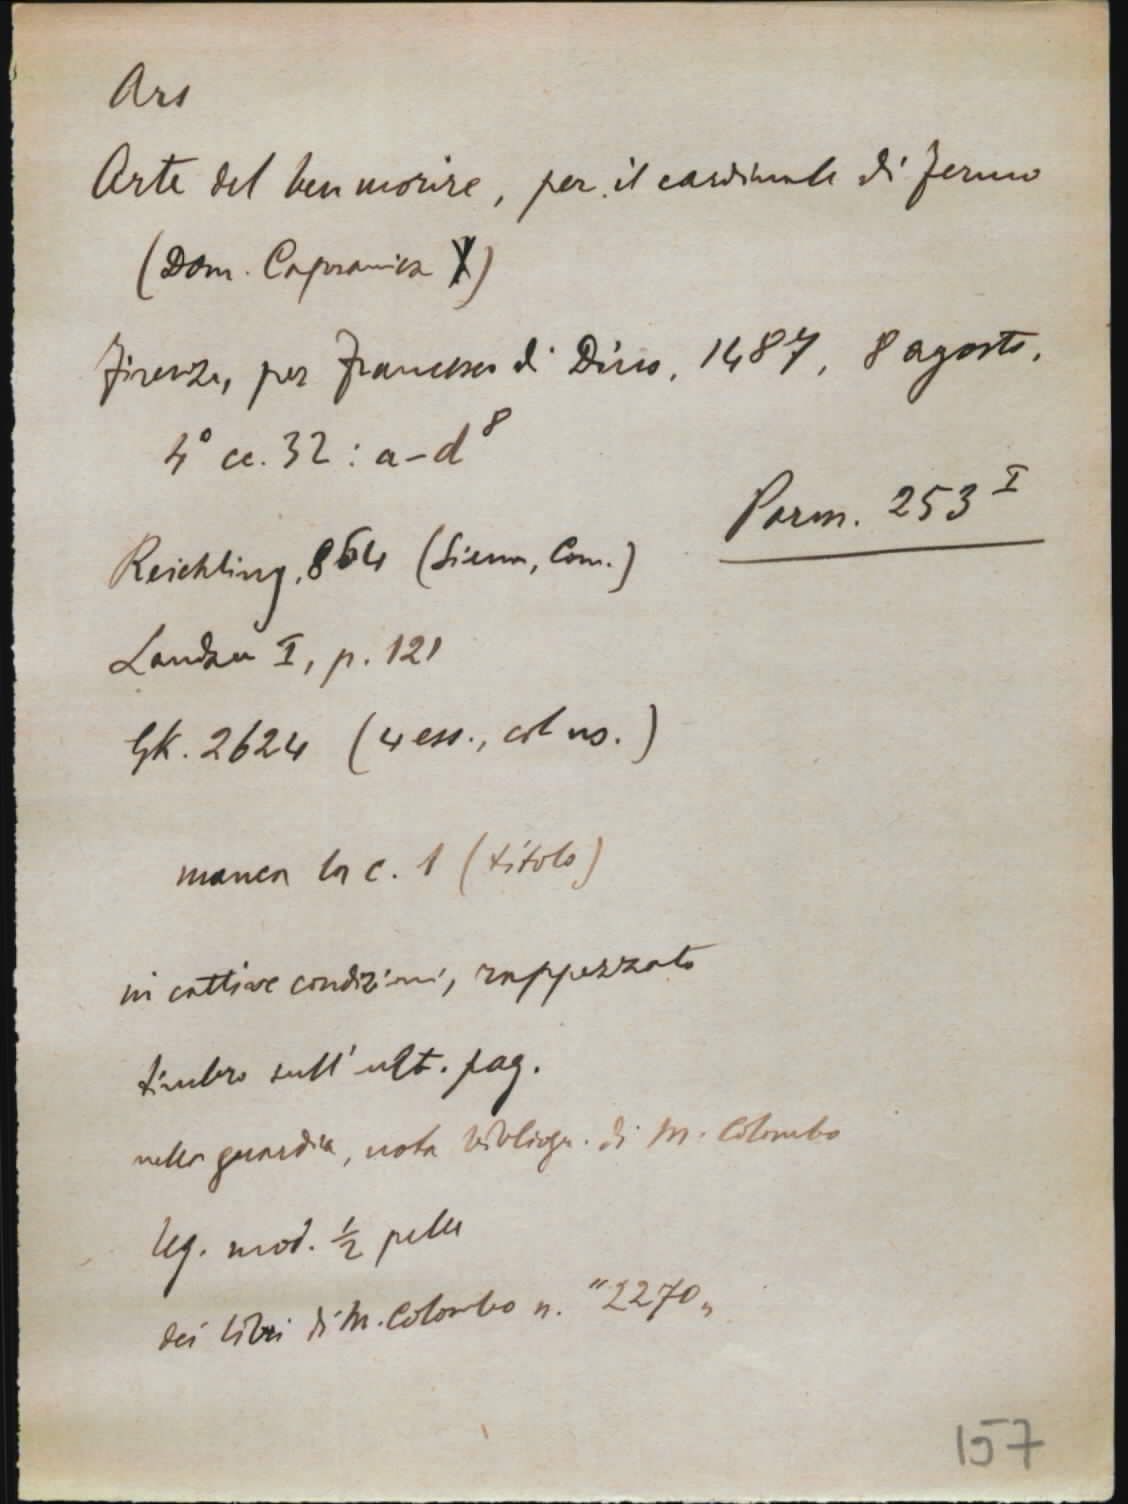 Ars
Arte del ben morire, per il cardinale di Fermo
(Dom. Capranica X)
Firenze, per Francesco di Dino, 1487, 8 agosto.
4° cc. 32 : a-d⁸
Parm. 253 I
Reichling, 864 (Siena, Com.)
Landau I, p. 121
GK. 2624 (4 ess., col ns.)
manca la c. 1 (titolo)
in cattive condizioni, rappezzato
timbro sull'ult. pag.
nella guardia, nota bibliogr. di M. Colombo
leg. mod. ½ pelle
dei libri di M. Colombo n. "2270"
157